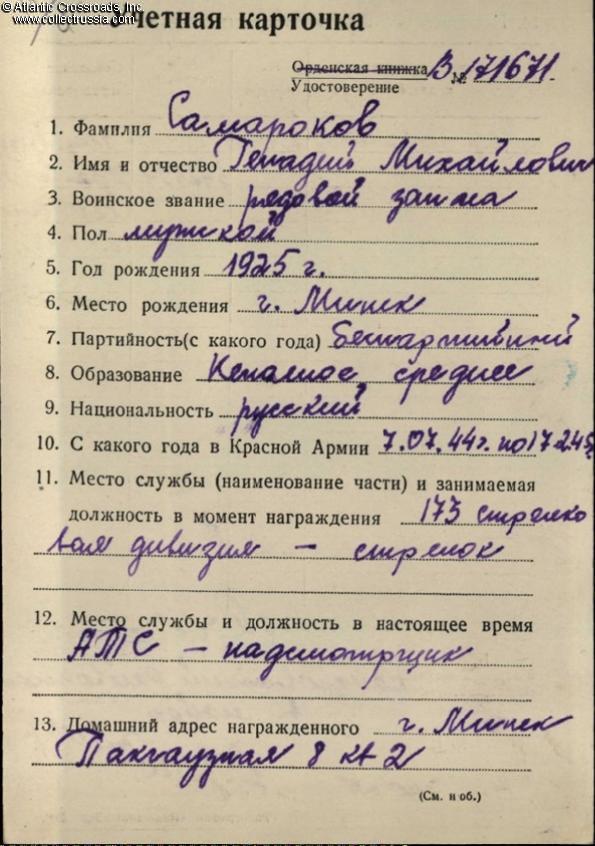 © Atlantic Crossroads, Inc.
www.collectrussia.com
Учетная карточка
Орденская книжка В № 171671.
Удостоверение
1. Фамилия Самароков
2. Имя и отчество Генадий Михайлович
3. Воинское звание рядовой запаса
4. Пол мужской
5. Год рождения 1925 г.
6. Место рождения г. Минск
7. Партийность(с какого года) Беспартийный
8. Образование Неполное среднее
9. Национальность русский
10. С какого года в Красной Армии 7.07.44г. по 17.2.45
11. Место службы (наименование части) и занимаемая
должность в момент награждения 173 стрелко
вая дивизия – стрелок
12. Место службы и должность в настоящее время
АТС – надсмотрщик
13. Домашний адрес награжденного г. Минск
Пакгаузная 8 кв 2
(См. н об.)